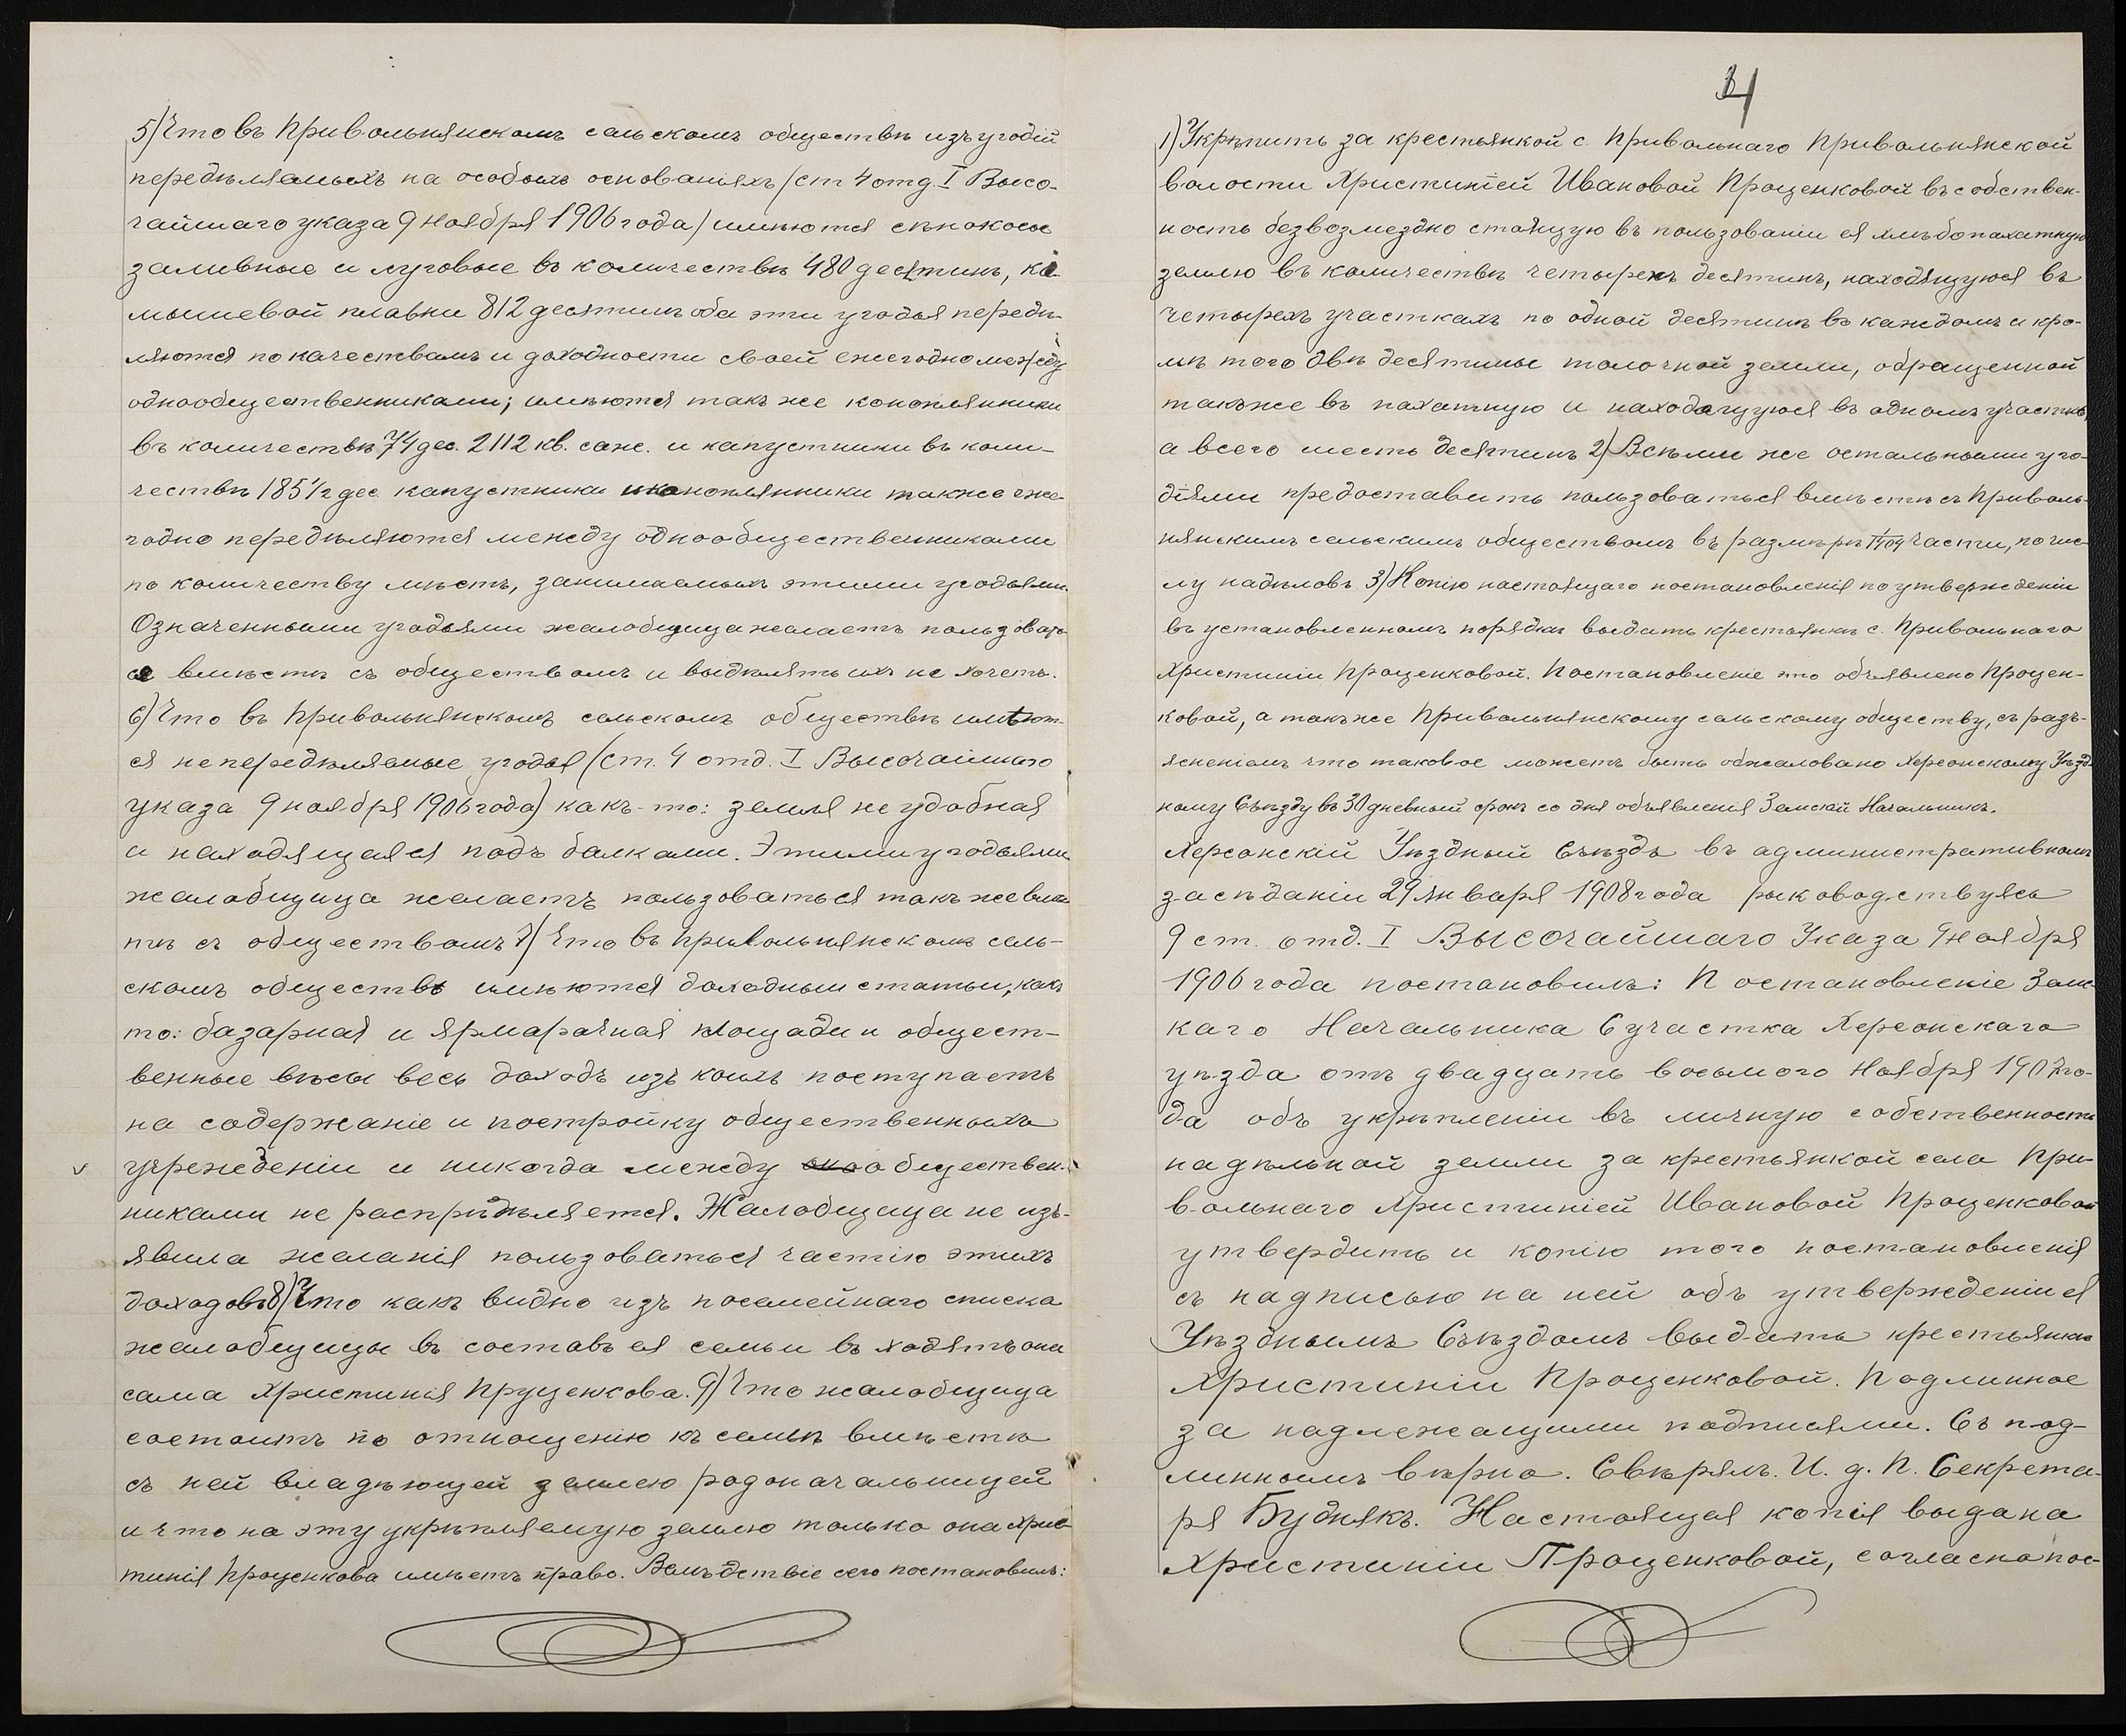 5) Что въ Привольнянскомъ сельскомъ обществѣ изъ угодій
передѣляемыхъ на особыхъ основаніяхъ (ст 4 отд. I Высо-
чайшаго указа 9 ноября 1906 года) имѣются сѣнокосы
заливные и луговые въ количествѣ 480 десятинъ, ка-
мышевой плавни 812 десятинъ оба эти угодья передѣ-
ляются по качествамъ и доходности своей ежегодно между
однообщественниками; имѣются такъ же конопляники
въ количествѣ 74 дес. 2112 кв. саж. и капустники въ коли-
чествѣ 185½ дес. капустники и конопляники также еже-
годно передѣляются между однообщественниками
по количеству мѣстъ, занимаемыхъ этими угодьями.
Означенными угодьями жалобщица желаетъ пользовать-
ся вмѣстѣ съ обществомъ и выдѣлять ихъ не хочетъ.
6) Что въ Привольнянскомъ сельскомъ обществѣ имѣют-
ся непередѣляемые угодья (ст. 4 отд. I Высочайшаго
указа 9 ноября 1906 года) какъ-то: земля не удобная
и находящаяся подъ балками. Этими угодьями
жалобщица желаетъ пользоваться такъ же вмѣ-
тѣ съ обществомъ 7) Что въ Привольнянскомъ сель-
скомъ обществѣ имѣются доходныи статьи, какъ
то: базарная и ярмарачная площади и общест-
венные вѣсы весь доходъ изъ коихъ поступаетъ
на содержаніе и постройку общественныхъ
учрежденіи и никогда между обществен-
никами не распридѣляется. Жалобщица не изъ-
явила желанія пользоваться частію этихъ
доходовъ 8) Что какъ видно изъ посемейнаго списка
жалобщицы въ составъ ея семьи въ ходятъ она
сама Христинія Пруценкова. 9) Что жалобщица
состоитъ по отношенію къ семьѣ вмѣстѣ
съ ней владѣющей землею родоначальницей
и что на эту укрѣпляемую землю только она Хрис-
тинія Проценкова имѣетъ право. Вслѣдствіе сего постановилъ:
4
1) Укрѣпить за крестьянкой с. Привольнаго Привольнянской
волости Христиніей Ивановой Проценковой въ собствен-
ность безвозмездно стоящую въ пользованіи ея хлѣбопахатную
землю въ количествѣ четырехъ десятинъ, находящуюся въ
четырехъ участкахъ по одной десятинѣ въ каждомъ и кро-
мѣ того двѣ десятины толочной земли, обращенной
такъже въ пахатную и находящуюся въ одномъ участкѣ,
а всего шесть десятинъ 2) Всѣми же остальными уго-
діями предоставить пользоваться вмѣстѣ съ Приволь-
нянскимъ сельскимъ обществомъ въ размѣрѣ части, по чис-
лу надѣловъ 3) Копію настоящаго постановленія по утвержденіи
въ установленномъ порядкѣ выдать крестьянкѣ с. Привольнаго
Христиніи Проценковой. Постановленіе это объявлено Процен-
ковой, а такъже Привольнянскому сельскому обществу, съ разъ-
ясненіемъ что таковое можетъ быть обжаловано Херсонскому Уѣзд-
ному Съѣзду въ 30 дневный срокъ со дня объявленія Земскій Начальникъ.
Херсонскій Уѣздный Съѣздъ въ административномъ
засѣданіи 29 января 1908 года руководствуясь
9 ст. отд. I Высочайшаго Указа 9 ноября
1906 года постановилъ: Постановленіе Земс-
каго Начальника 6 участка Херсонскаго
уѣзда отъ двадцать восьмого Ноября 1907 го-
да объ укрѣпленіи въ личную собственность
надѣльной земли за крестьянкой села При-
вольнаго Христиніей Ивановой Проценковой
утвердить и копію того постановленія
съ надписью на ней объ утвержденіи ея
Уѣзднымъ Съѣздомъ выдать крестьянкѣ
Христиніи Проценковой. Подлинное
за надлежащими подписями. Съ под-
линнымъ вѣрно. Свѣрялъ. И. д. П. Секрета-
ря Буднякъ. Настоящая копія выдана
Христиніи Проценковой, согласно пос-